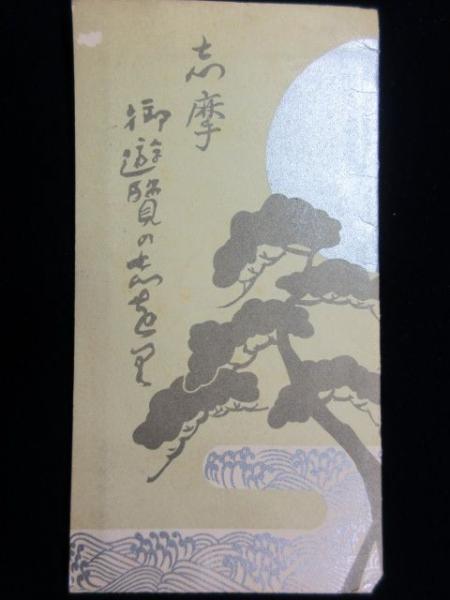 志摩
御遊覧の志を里